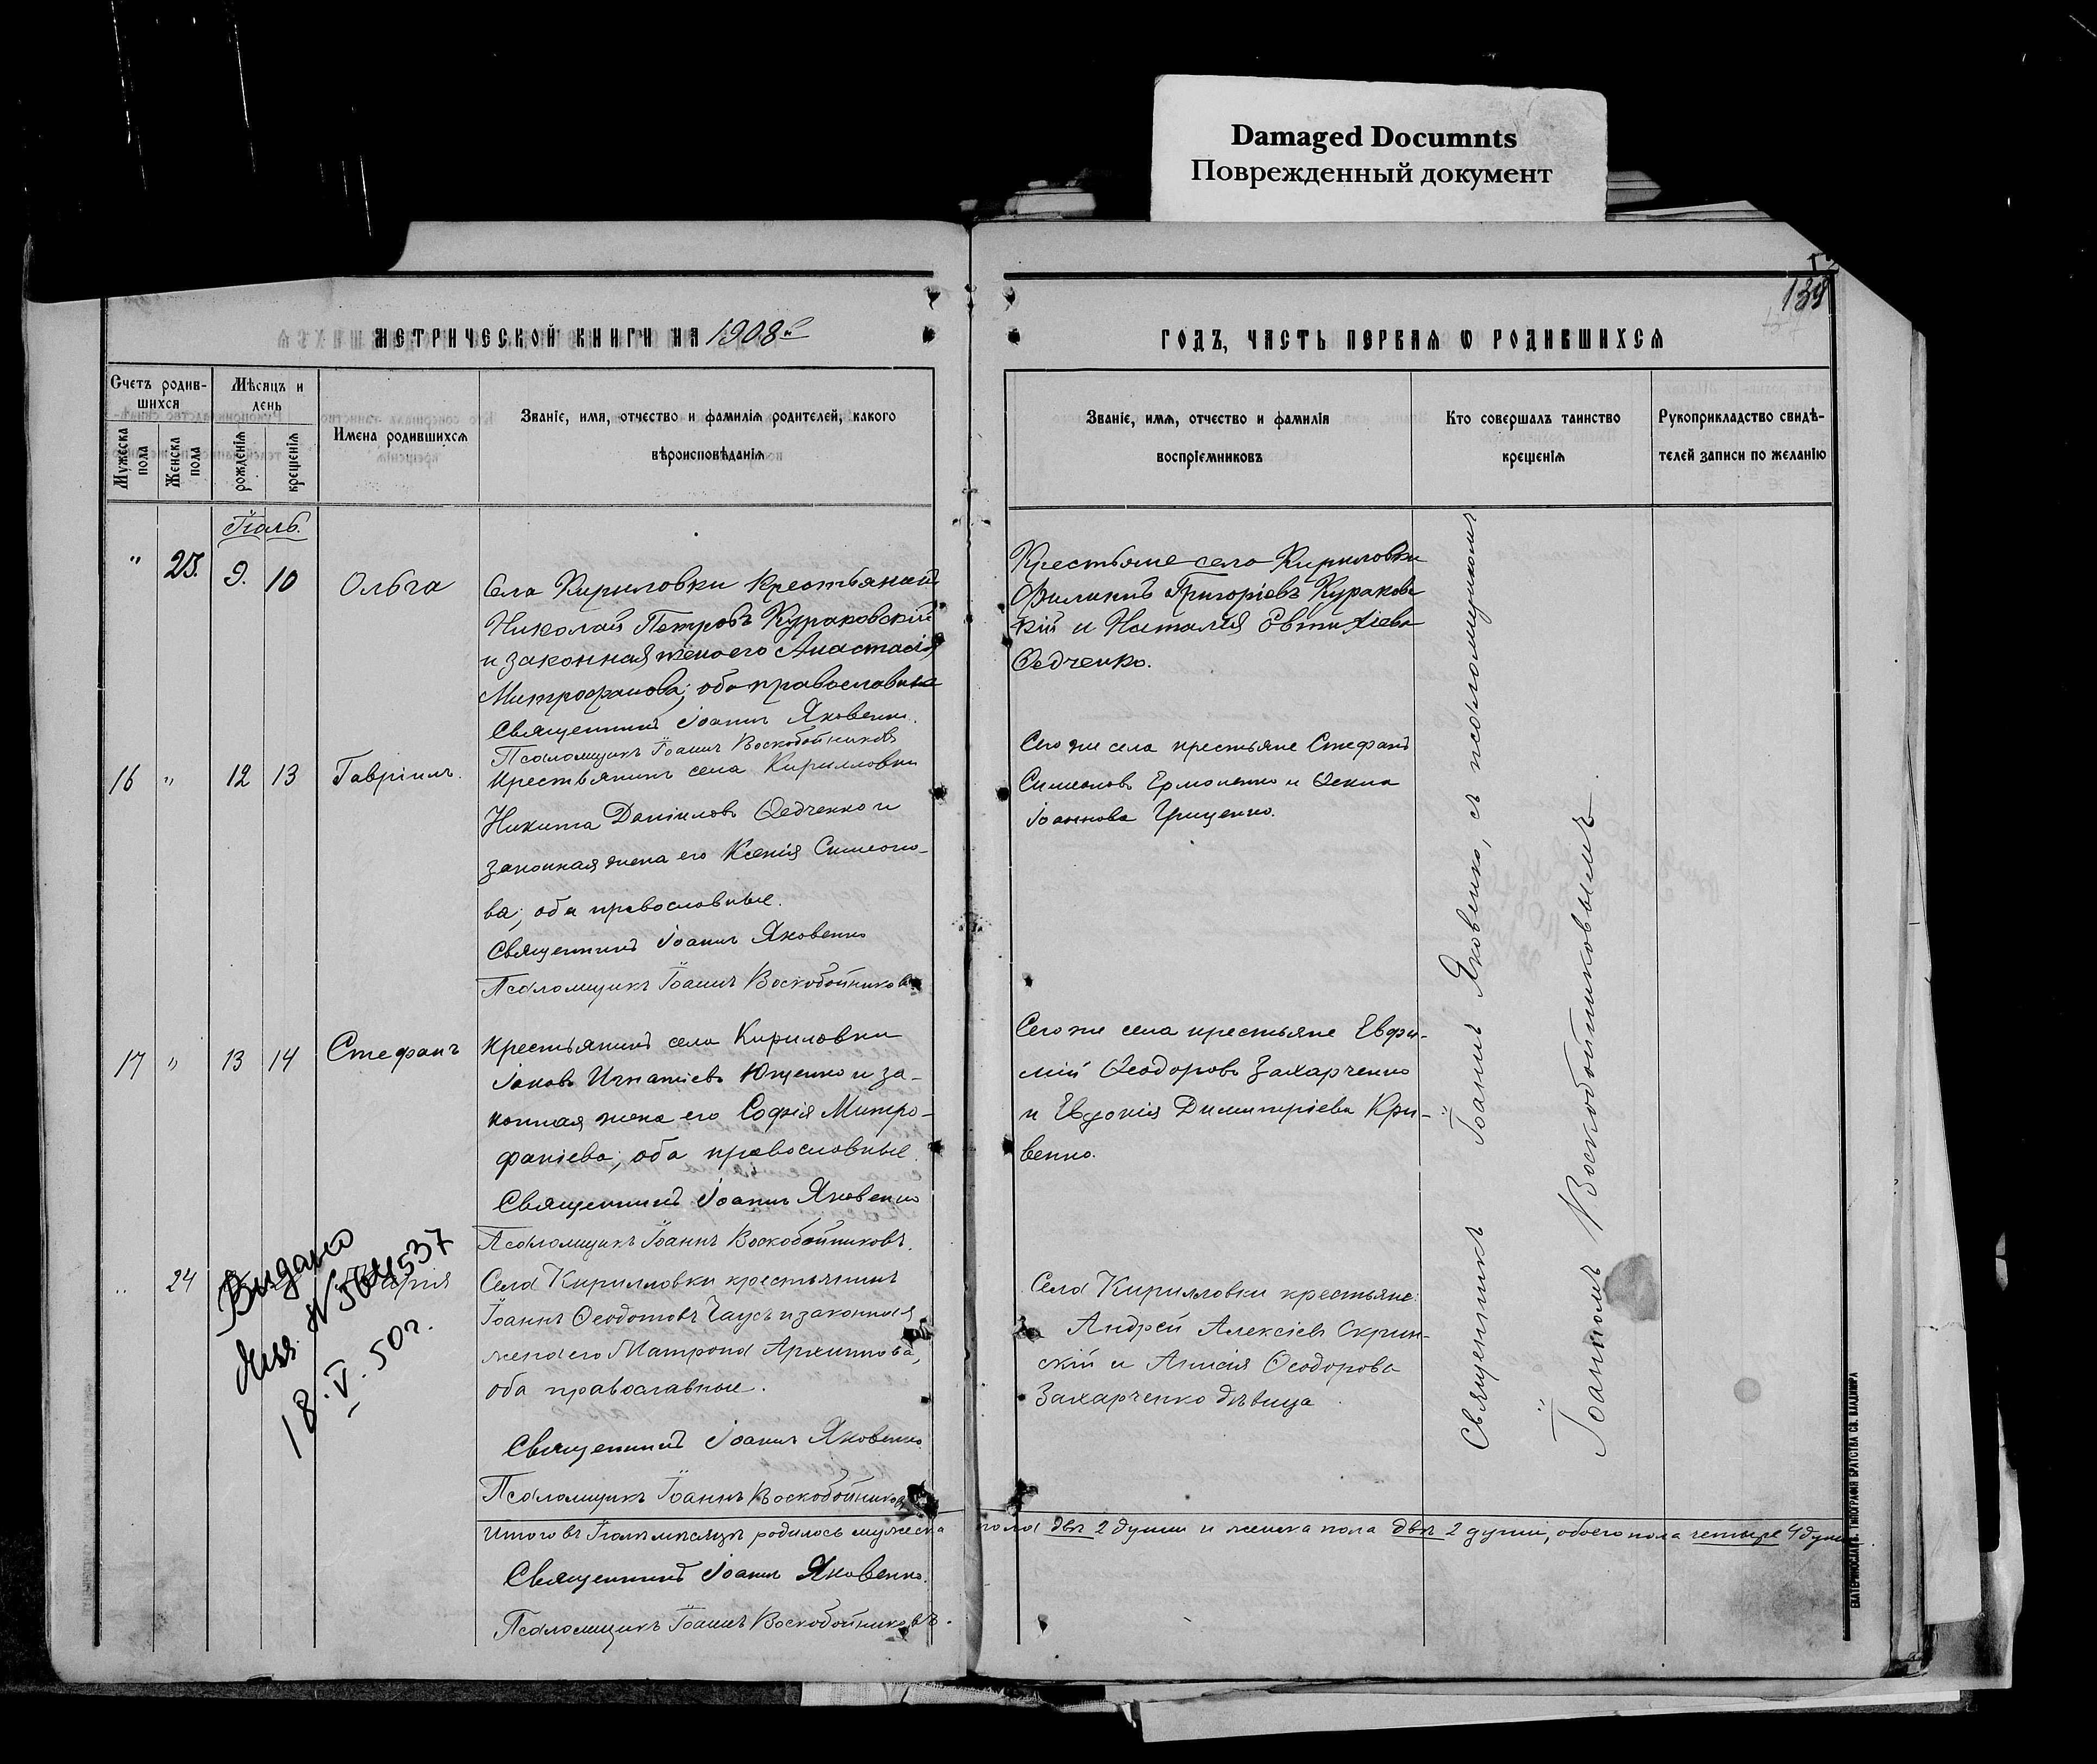 Damaged Documnts
Поврежденный документ
138
МЕТРИЧЕСКОЙ КНИГИ НА 1908й
ГОДЪ, ЧАСТЬ ПЕРВАЯ Ѡ РОДИВШИХСЯ
Счетъ родив-
шихся
Мужеска пола
Женска пола
Мѣсяцъ и
день
рожденія
крещенія
Имена родившихся
Званіе, имя, отчество и фамилія родителей, какого
вѣроисповѣданія
Званіе, имя, отчество и фамилія
воспріемниковъ
Кто совершалъ таинство
крещенія
Рукоприкладство свидѣ-
телей записи по желанію
Іюль.
" 23. 9. 10 Ольга
Села Кириловки крестьянинъ
Николай Петровъ Кураковскій
и законная жена его Анастасія
Митрофанова; оба православные
Священникъ Іоаннъ Яковенко.
Псаломщикъ Іоаннъ Воскобойниковъ
Крестьяне села Кириловки
Филиппъ Григоріевъ Кураковс
кій и Наталія Евтихіева
Ѳедченко.
16 " 12 13 Гавріилъ.
Крестьянинъ села Кирилловки
Никита Даніиловъ Ѳедченко и
законная жена его Ксенія Симеоно-
ва; оба православные.
Священникъ Іоаннъ Яковенко
Псаломщикъ Іоаннъ Воскобойниковъ
Сего же села крестьяне Стефанъ
Симеоновъ Ермоленко и Ѳекла
Іоаннова Грищенко.
17 " 13 14 Стефанъ
Крестьянинъ села Кириловки
Іаковъ Игнатіевъ Ющенко и за-
конная жена его Софія Митро-
фаніева; оба православные.
Священникъ Іоаннъ Яковенко
Псаломщикъ Іоаннъ Воскобойниковъ.
Сего же села крестьяне Евфи-
мій Ѳеодоровъ Захарченко
и Евдокія Димитріева Кри-
венко.
" 24 Марія
Села Кирилловки крестьянинъ
Іоаннъ Ѳеодотовъ Гаусъ и законная
жена его Матрона Архипова,
оба православные.
Священникъ Іоаннъ Яковенко
Псаломщикъ Іоаннъ Воскобойниковъ
Села Кирилловки крестьяне:
Андрей Алексіевъ Скрин-
скій и Анисія Ѳеодорова
Захарченко дѣвица
Видано
N 504537
18. V. 50г.
Священникъ Іоаннъ Яковенко, съ псаломщикомъ
Іоанномъ Воскобойниковымъ
Итого въ Іюлѣ мѣсяцѣ родилось мужеска пола двѣ 2 души и женска пола двѣ 2 души, обоего пола четыре 4 души.
Священникъ Іоаннъ Яковенко.
Псаломщикъ Іоаннъ Воскобойниковъ.
ЕКАТЕРИНОСЛАВЪ. ТИПОГРАФІЯ БРАТСТВА СВ. ВЛАДИМІРА